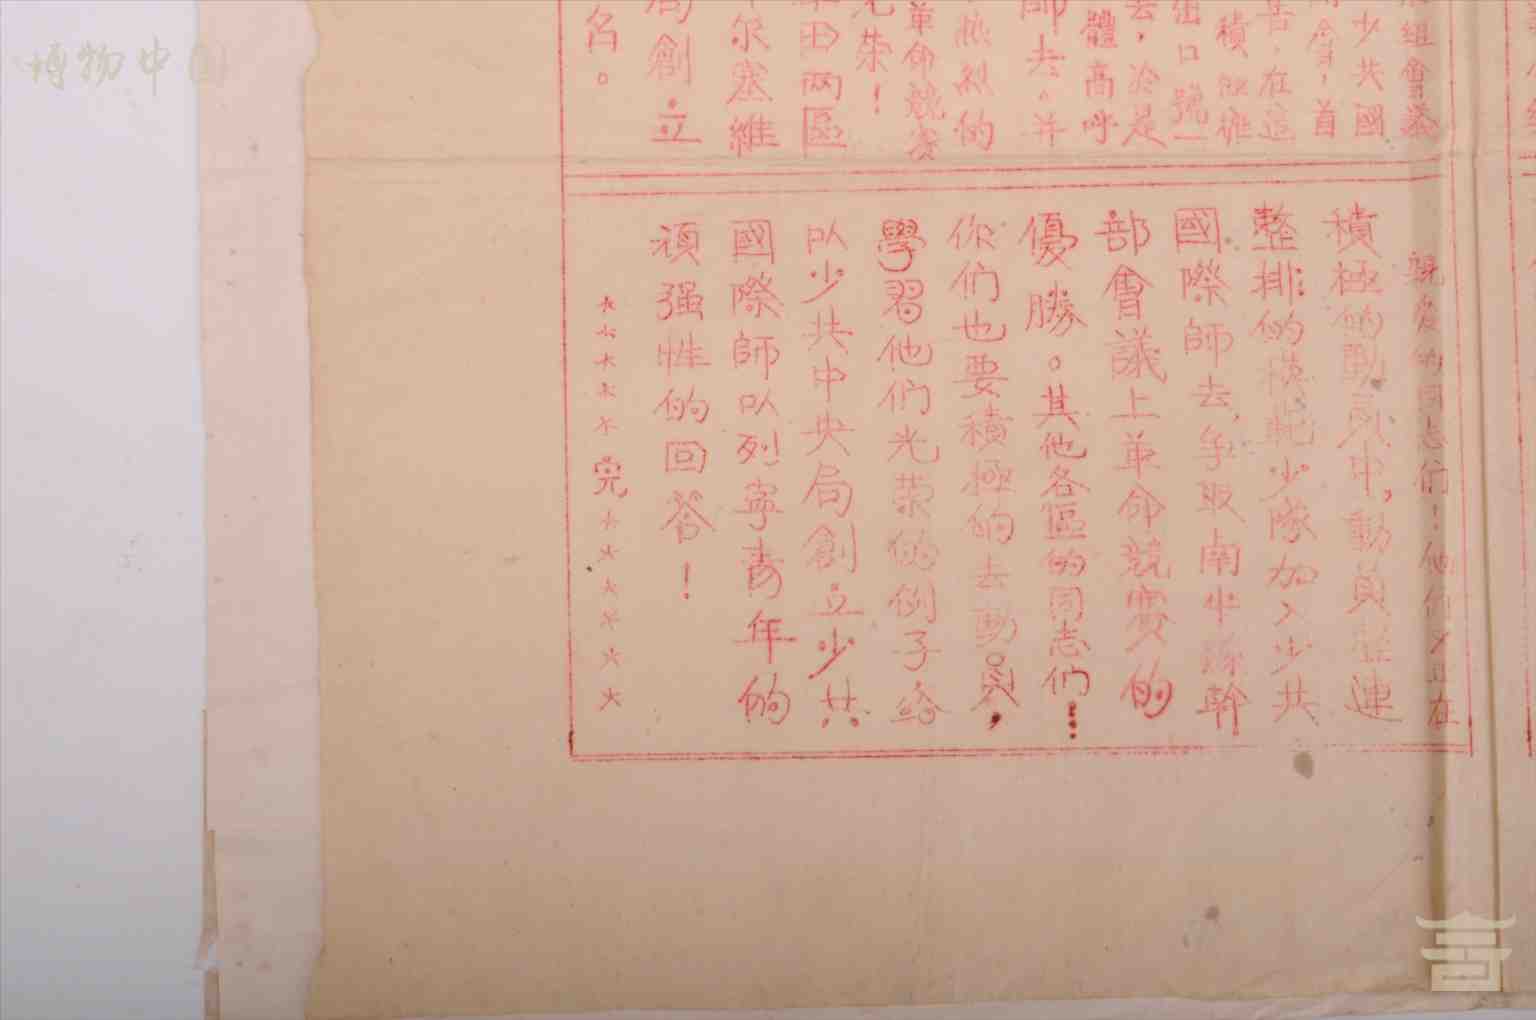 博物中国
組會
少共國
會，首
告，在這
積極擁
出口號一
去，於是
體高呼
師去。并
熱烈的
革命競賽
光荣！
田两區
尔塞維
局創立
名。
親愛的同志们！他们又正在
積極的動員中，動員整連
整排的模範少隊加入少共
國際師去，争取南半縣幹
部會議上革命競賽的
優勝。其他各區的同志们：
你们也要積極的去動員，
學習他们光荣的例子給
以少共中央局創立少共
國際師以列寧青年的
頑强性的回答！
完